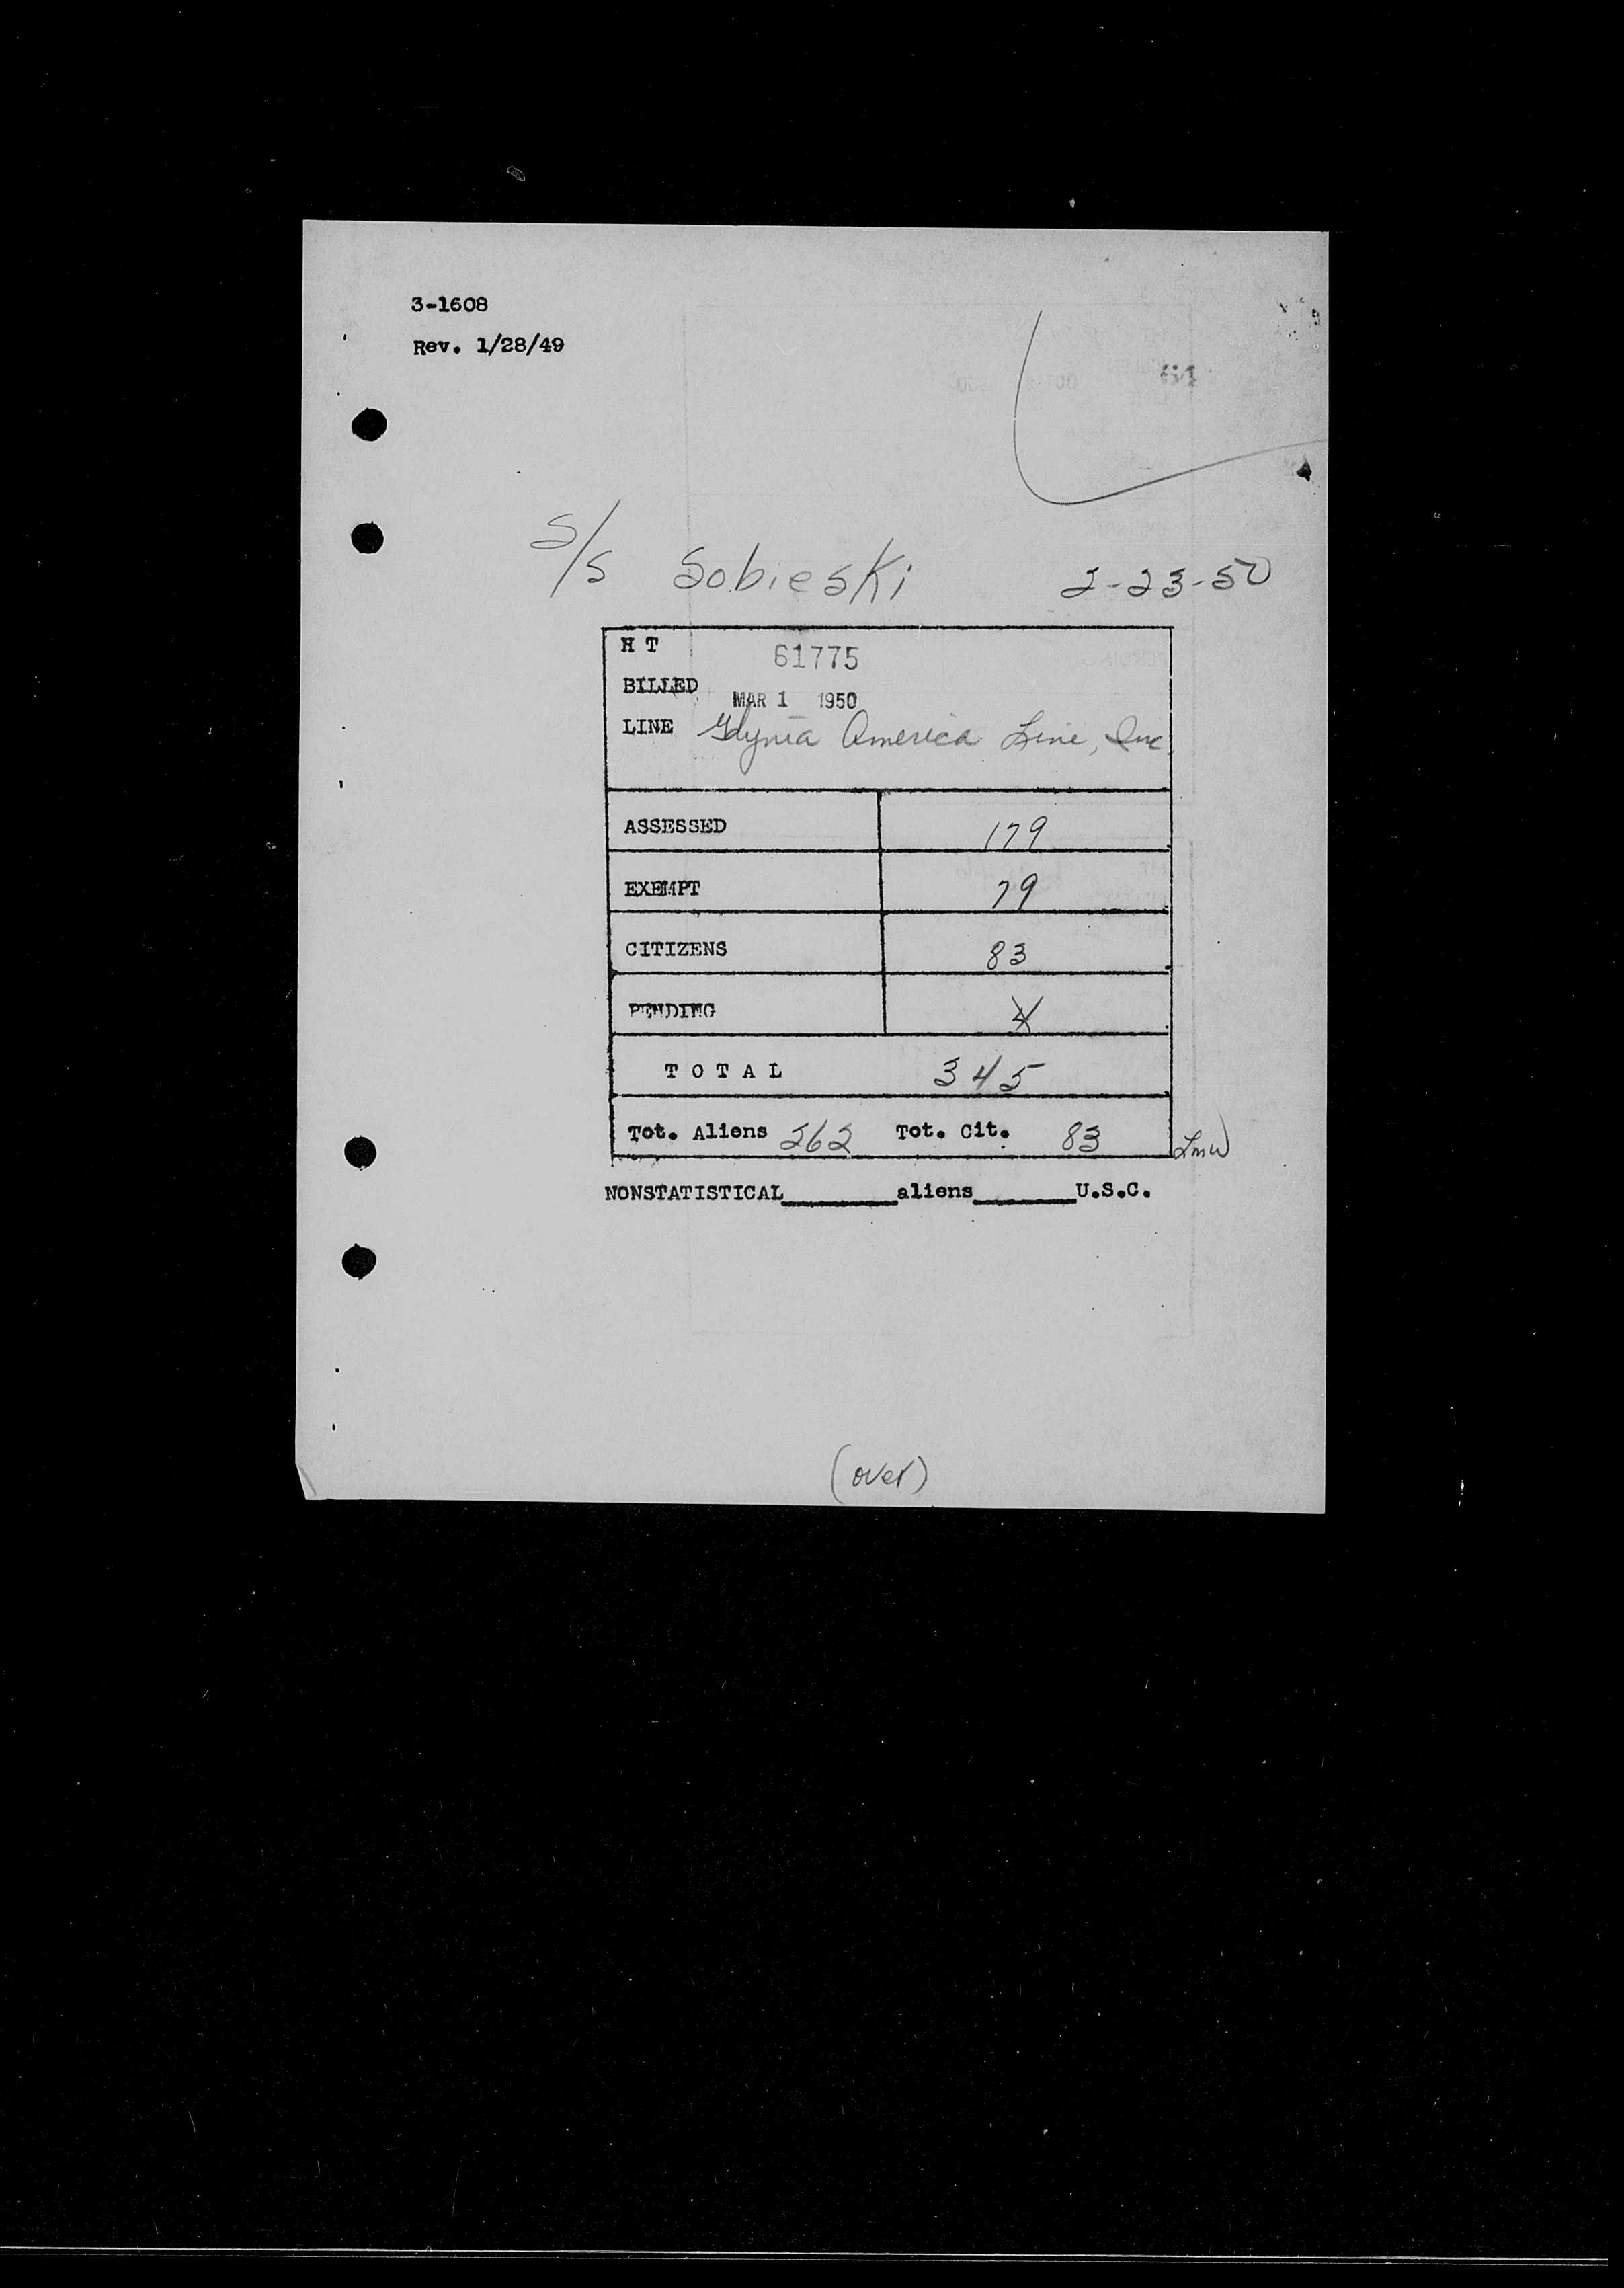 3-1608
Rev. 1/28/49
S/S Sobieski 2-23-50
H T 61775
BILLED MAR 1 1950
LINE Gdynia America Line, Inc.
ASSESSED 179
EXEMPT 79
CITIZENS 83
PENDING 4
TOTAL 345
Tot. Aliens 262 Tot. Cit. 83 LMW
NONSTATISTICAL________aliens_______U.S.C.
(over)